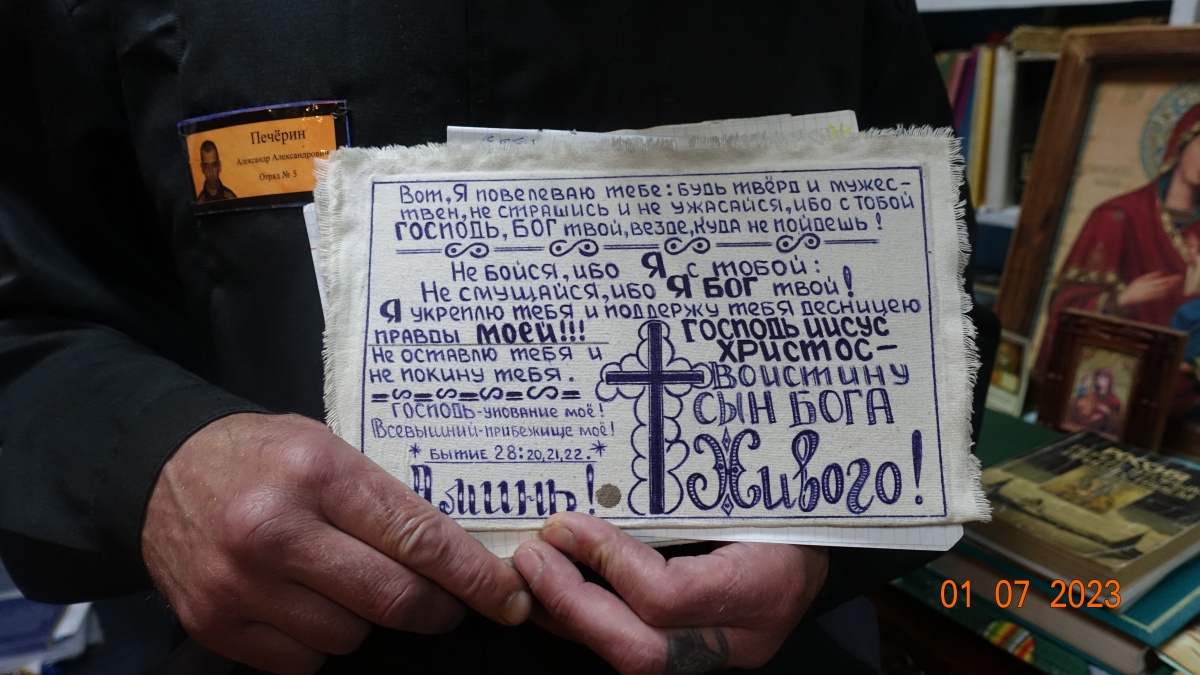 Печёрин
Александр Александрович
Отряд № 5
Вот, Я повелеваю тебе: будь твёрд и мужес-
твен, не страшись и не ужасайся, ибо с тобой
ГОСПОДЬ, БОГ твой, везде, куда не пойдешь!
Не бойся, ибо Я с тобой:
Не смущайся, ибо Я БОГ твой!
Я укреплю тебя и поддержу тебя десницею
правды МОЕЙ!!!
Не оставлю тебя и
не покину тебя.
ГОСПОДЬ-упование моё!
Всевышний-прибежище моё!
* Бытие 28:20,21,22. *
Аминь!
ГОСПОДЬ ИИСУС
ХРИСТОС-
ВОИСТИНУ
СЫН БОГА
Живого!
01 07 2023